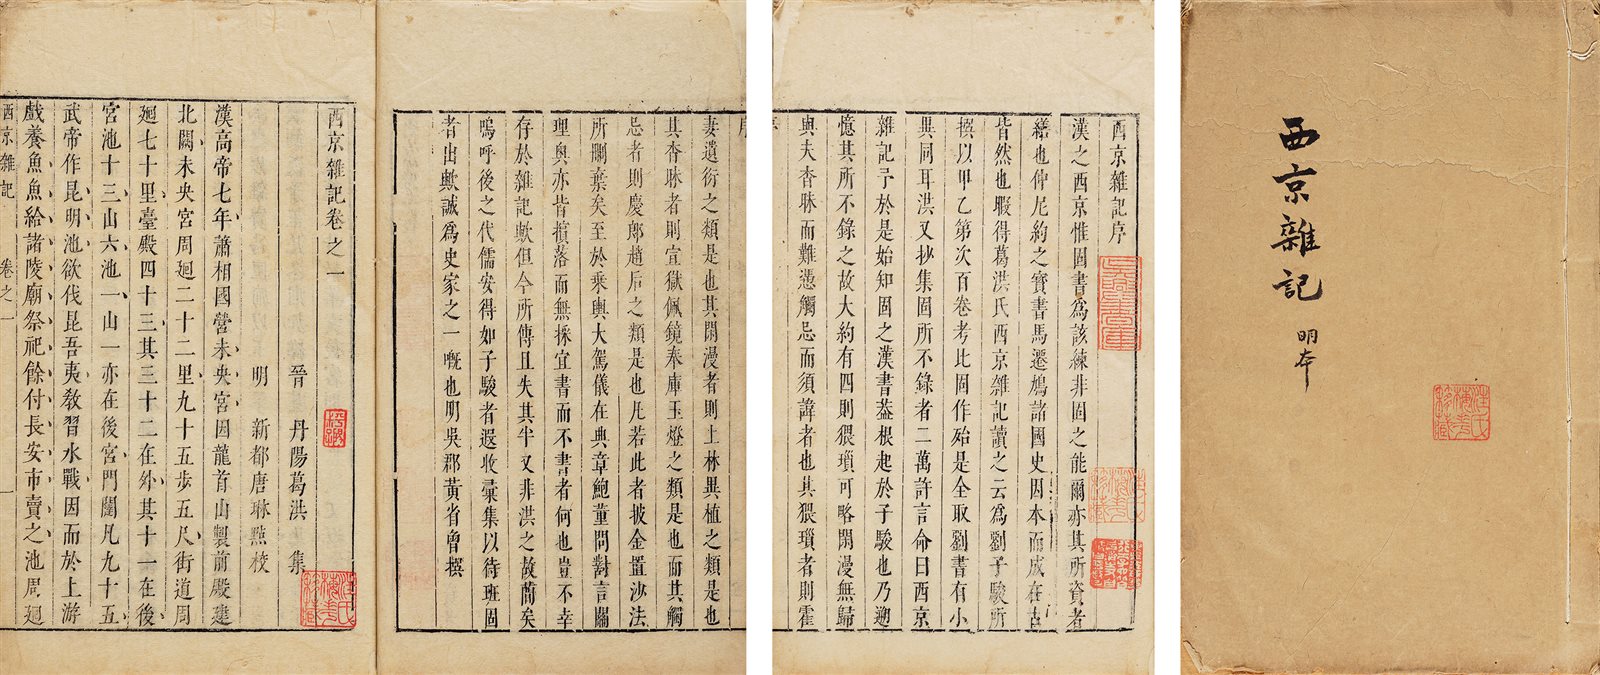 西京雜記
明本
西京雜記序
漢之西京惟固書爲該練非固之能爾亦其所資者
繕也仲尼約之寳書馬遷鳩諸國史因本而成在古
皆然也暇得葛洪氏西京雜記讀之云爲劉子駿所
撰以甲乙第次百卷考比固作殆是全取劉書有小
異同耳洪又抄集固所不錄者二萬許言命曰西京
雜記予於是始知固之漢書葢根起於子駿也乃遡
憶其所不錄之故大約有四則猥瑣可略閑漫無歸
與夫杳昧而難憑觸忌而須諱者也其猥瑣者則霍
序
妻遺衍之類是也其閑漫者則上林異植之類是也
其杳昧者則宣獄佩鏡秦庫玉燈之類是也而其觸
忌者則慶郎趙后之類是也凡若此者披金置沙法
所刪棄矣至於乘輿大駕儀在典章鮑董問對言關
理奥亦皆擯落而無採宜書而不書者何也豈不幸
存於雜記歟但今所傳且失其半又非洪之故簡矣
嗚呼後之代儒安得如子駿者遐收彙集以待班固
者出歟誠爲史家之一慨也明吳郡黃省曾撰
西京雜記卷之一
晉 丹陽葛洪 集
明 新都唐琳㸃校
漢高帝七年蕭相國營未央宮因龍首山製前殿建
北闕未央宮周廻二十二里九十五步五尺街道周
廻七十里臺殿四十三其三十二在外其十一在後
宮池十三山六池一山一亦在後宮門闥凡九十五
武帝作昆明池欲伐昆吾夷教習水戰因而於上游
戲養魚魚給諸陵廟祭祀餘付長安市賣之池周廻
西京雜記 卷之一 一